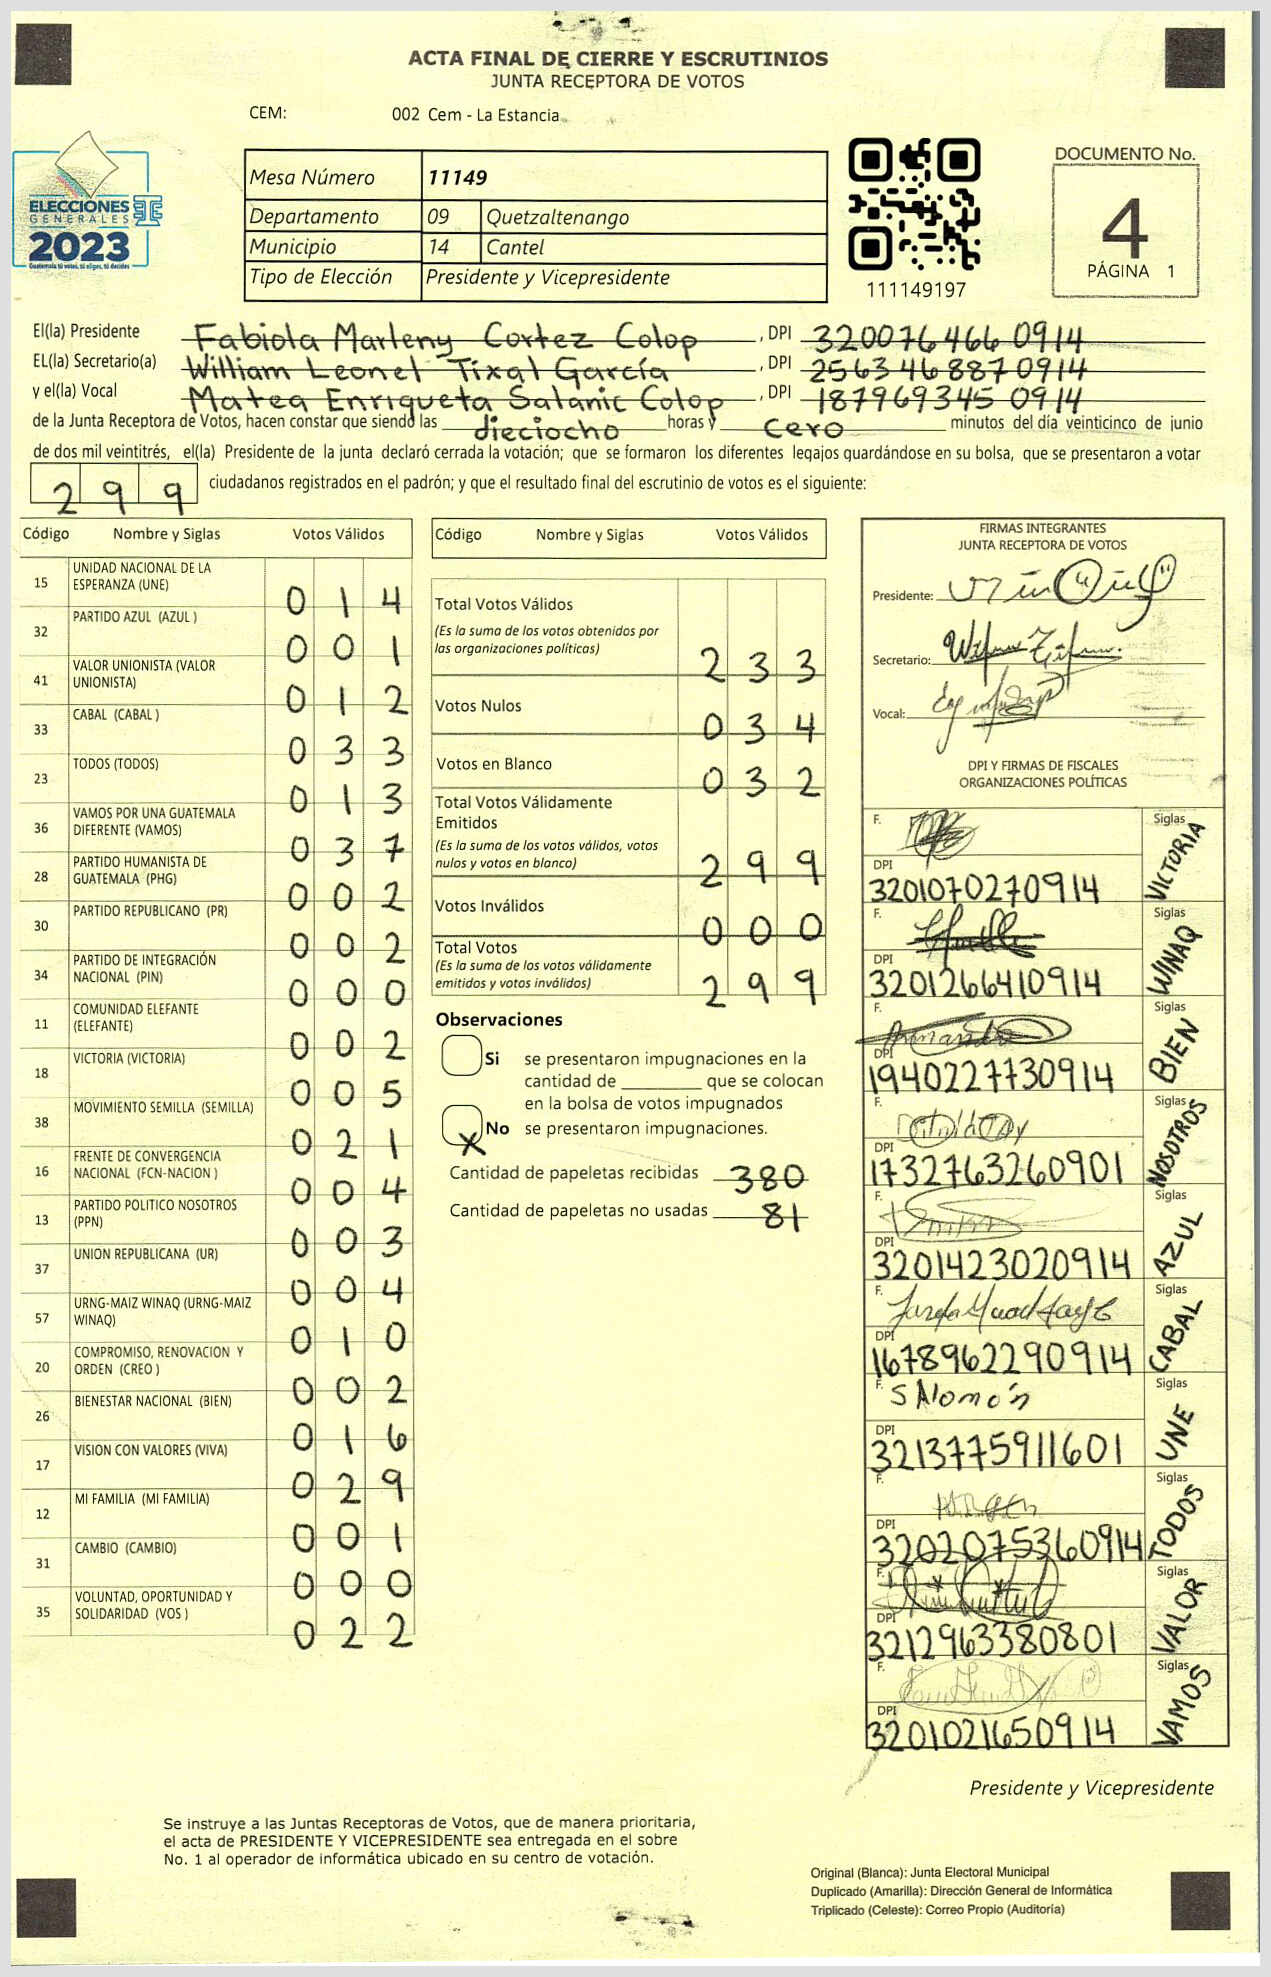 ACTA FINAL DE CIERRE Y ESCRUTINIOS
JUNTA RECEPTORA DE VOTOS
CEM: 002 Cem - La Estancia
ELECCIONES
GENERALES
2023
Guatemala tú votas, tú eliges, tú decides
Mesa Número 11149
Departamento 09 Quetzaltenango
Municipio 14 Cantel
Tipo de Elección Presidente y Vicepresidente
111149197
DOCUMENTO No.
4
PÁGINA 1
El(la) Presidente Fabiola Marleny Cortez Colop, DPI 320076466 0914
EL(la) Secretario(a) William Leonel Tixal García, DPI 256346887 0914
y el(la) Vocal Matea Enriqueta Salanic Colop, DPI 187969345 0914
de la Junta Receptora de Votos, hacen constar que siendo las dieciocho horas y cero minutos del día veinticinco de junio
de dos mil veintitrés, el(la) Presidente de la junta declaró cerrada la votación; que se formaron los diferentes legajos guardándose en su bolsa, que se presentaron a votar
299 ciudadanos registrados en el padrón; y que el resultado final del escrutinio de votos es el siguiente:
Código Nombre y Siglas Votos Válidos
15 UNIDAD NACIONAL DE LA
ESPERANZA (UNE) 014
32 PARTIDO AZUL (AZUL ) 001
41 VALOR UNIONISTA (VALOR
UNIONISTA) 012
33 CABAL (CABAL ) 033
23 TODOS (TODOS) 013
36 VAMOS POR UNA GUATEMALA
DIFERENTE (VAMOS) 037
28 PARTIDO HUMANISTA DE
GUATEMALA (PHG) 002
30 PARTIDO REPUBLICANO (PR) 002
34 PARTIDO DE INTEGRACIÓN
NACIONAL (PIN) 000
11 COMUNIDAD ELEFANTE
(ELEFANTE) 002
18 VICTORIA (VICTORIA) 005
38 MOVIMIENTO SEMILLA (SEMILLA) 021
16 FRENTE DE CONVERGENCIA
NACIONAL (FCN-NACION ) 004
13 PARTIDO POLITICO NOSOTROS
(PPN) 003
37 UNION REPUBLICANA (UR) 004
57 URNG-MAIZ WINAQ (URNG-MAIZ
WINAQ) 010
20 COMPROMISO, RENOVACION Y
ORDEN (CREO ) 002
26 BIENESTAR NACIONAL (BIEN) 016
17 VISION CON VALORES (VIVA) 029
12 MI FAMILIA (MI FAMILIA) 001
31 CAMBIO (CAMBIO) 000
35 VOLUNTAD, OPORTUNIDAD Y
SOLIDARIDAD (VOS ) 022
Código Nombre y Siglas Votos Válidos
Total Votos Válidos
(Es la suma de los votos obtenidos por
las organizaciones políticas) 233
Votos Nulos 034
Votos en Blanco 032
Total Votos Válidamente
Emitidos
(Es la suma de los votos válidos, votos
nulos y votos en blanco) 299
Votos Inválidos 000
Total Votos
(Es la suma de los votos válidamente
emitidos y votos inválidos) 299
Observaciones
Si se presentaron impugnaciones en la
cantidad de ________ que se colocan
en la bolsa de votos impugnados
X No se presentaron impugnaciones.
Cantidad de papeletas recibidas 380
Cantidad de papeletas no usadas 81
FIRMAS INTEGRANTES
JUNTA RECEPTORA DE VOTOS
Presidente:
Secretario:
Vocal:
DPI Y FIRMAS DE FISCALES
ORGANIZACIONES POLÍTICAS
F. Siglas VICTORIA
DPI 3201070270914
F. Siglas WINAQ
DPI 3201266410914
F. Siglas BIEN
DPI 1940227730914
F. Siglas NOSOTROS
DPI 1732763260901
F. Siglas AZUL
DPI 3201423020914
F. Siglas CABAL
DPI 1678962290914
F. SAlomón Siglas UNE
DPI 3213775911601
F. Siglas TODOS
DPI 3202075360914
F. Siglas VALOR
DPI 3212963380801
F. Siglas VAMOS
DPI 3201021650914
Presidente y Vicepresidente
Se instruye a las Juntas Receptoras de Votos, que de manera prioritaria,
el acta de PRESIDENTE Y VICEPRESIDENTE sea entregada en el sobre
No. 1 al operador de informática ubicado en su centro de votación.
Original (Blanca): Junta Electoral Municipal
Duplicado (Amarilla): Dirección General de Informática
Triplicado (Celeste): Correo Propio (Auditoría)